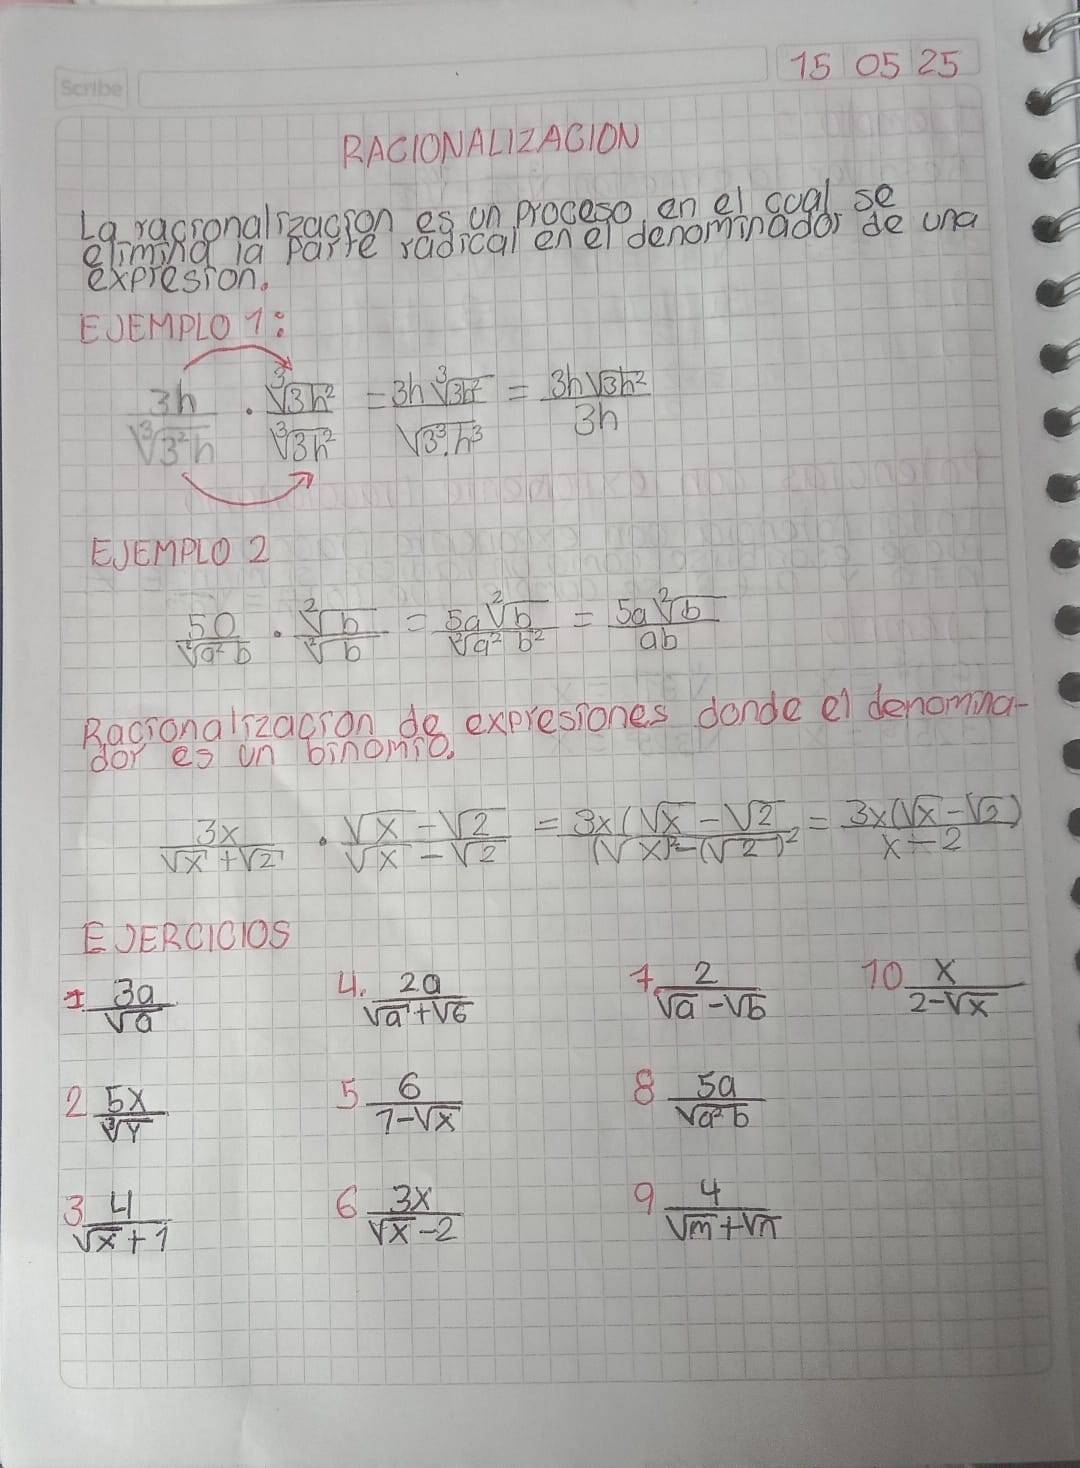 Scribe
15 05 25
RACIONALIZACION
La racionalizacion es un proceso, en el cual se
elimina la parte radical en el denominador de una
expresion.
EJEMPLO 1:
3h/∛(3²h) · ∛(3h²)/∛(3h²) = 3h∛(3h²)/√(3³.h³) = 3h√(3h²)/3h
EJEMPLO 2
50/²√(a²b) · ²√b/²√b = 5a²√b/²√(a²b²) = 5a²√b/ab
Racionalizacion de expresiones donde el denomina-
dor es un binomio.
3x/(√x+√2) · (√x-√2)/(√x-√2) = 3x(√x-√2/(√x)²-(√2)² = 3x(√x-√2)/x-2
EJERCICIOS
1 3a/√a 4. 2a/(√a+√6) 7. 2/(√a-√b) 10 x/(2-√x)
2 5x/∛y 5 6/(7-√x) 8 5a/√(a²b)
3 4/(√x+1) 6 3x/(√x-2) 9 4/(√m+√n)